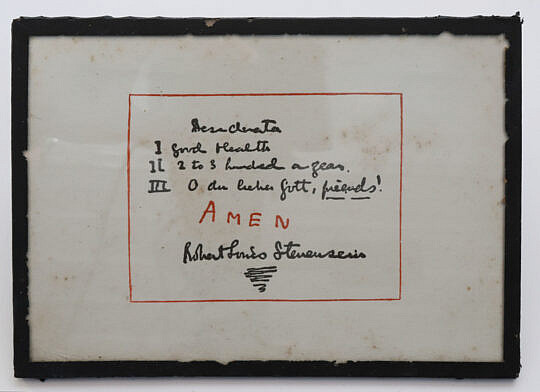 Desiderata
I Good Health
II 2 to 3 hundred a year.
III O du lieber Gott, friends!
AMEN
Robert Louis Stevenson